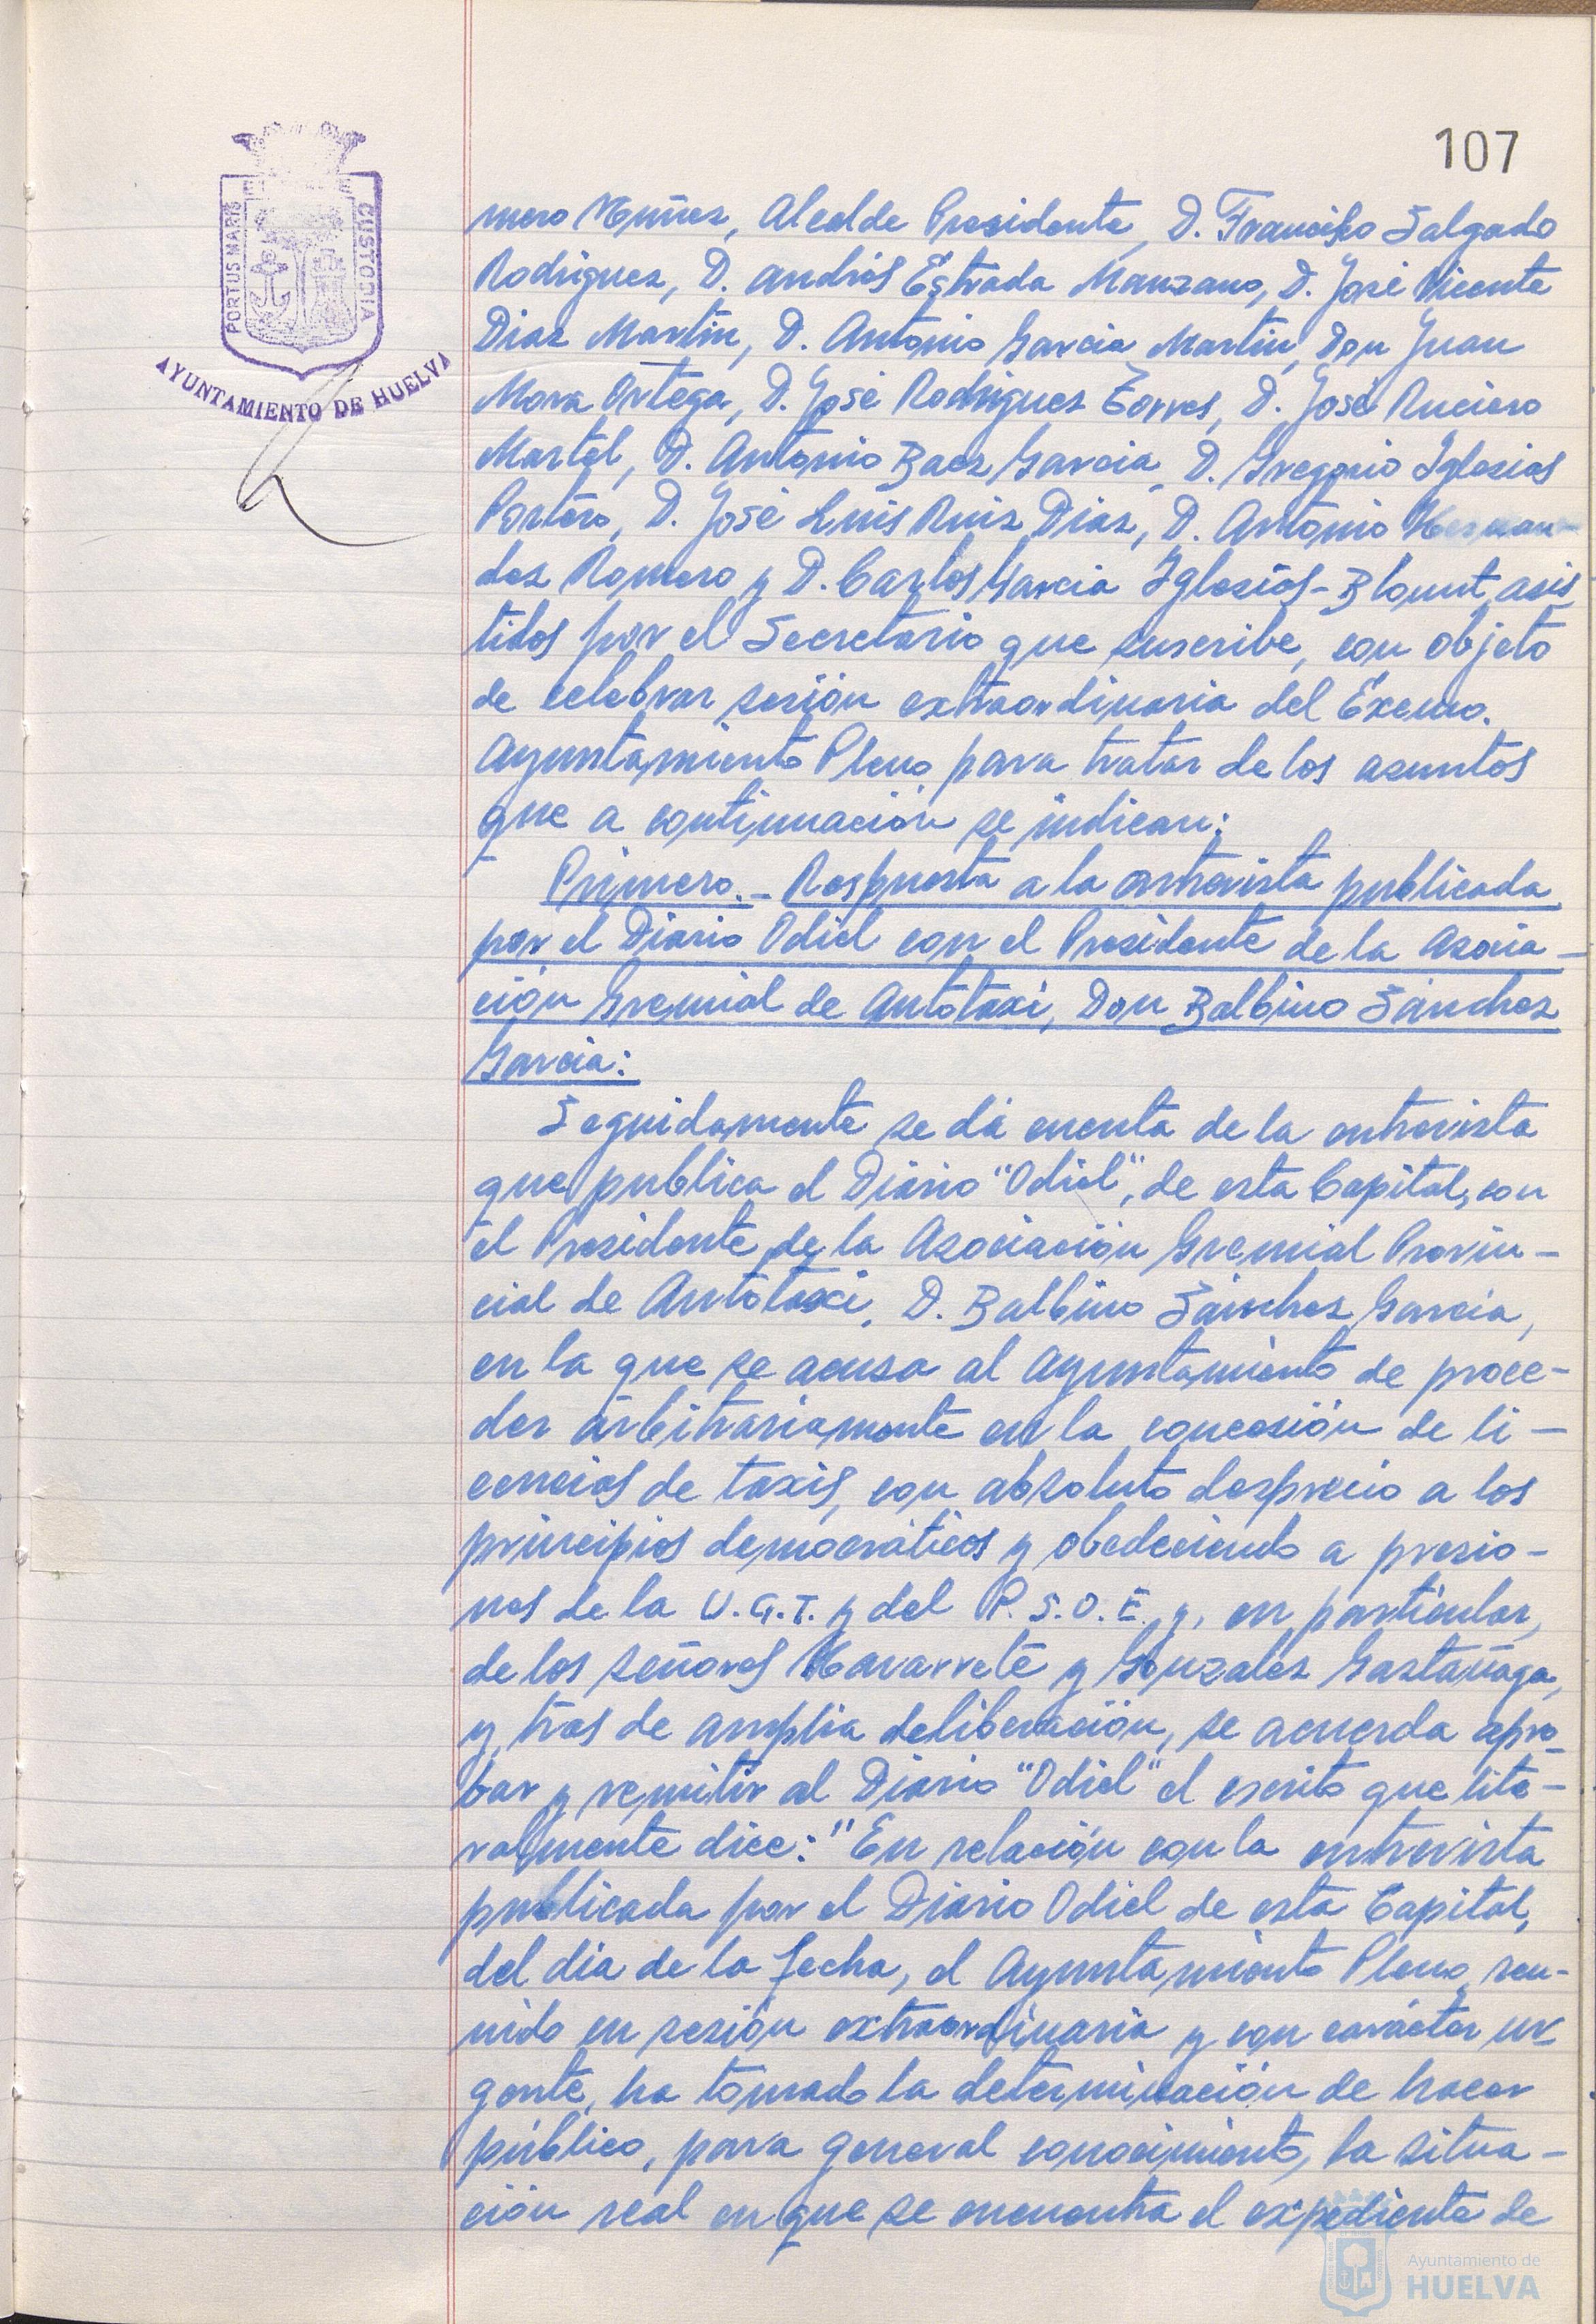 107
PORTUS MARIS
CUSTODIA
AYUNTAMIENTO DE HUELVA
mero Nuñez, Alcalde Presidente, D. Francisco Salgado
Rodriguez, D. Andrés Estrada Manzano, D. José Vicente
Diaz Martin, D. Antonio Garcia Martin, Don Juan
Mora Ortega, D. José Rodriguez Torres, D. José Ruciero
Martel, D. Antonio Baez Garcia, D. Gregorio Iglesias
Portero, D. José Luis Ruiz Diaz, D. Antonio Hernan-
dez Romero y D. Carlos Garcia Iglesias-Blount, asis
tidos por el Secretario que suscribe, con objeto
de celebrar sesión extraordinaria del Excmo.
Ayuntamiento Pleno, para tratar de los asuntos
que a continuación se indican:
Primero.- Respuesta a la entrevista publicada
por el Diario Odiel con el Presidente de la Asocia-
ción Gremial de Autotaxi, Don Balbino Sánchez
Garcia:
Seguidamente se dá cuenta de la entrevista
que publica el Diario "Odiel", de esta Capital, con
el Presidente de la Asociación Gremial Provin-
cial de Autotaxi, D. Balbino Sánchez Garcia,
en la que se acusa al Ayuntamiento de proce-
der arbitrariamente en la concesión de li-
cencias de taxis, con absoluto desprecio a los
principios democráticos y obedeciendo a presio-
nes de la U.G.T. y del P.S.O.E. y, en particular,
de los señores Navarrete y Gonzalez Gastañaga,
y, tras de amplia deliberación, se acuerda apro-
bar y remitir al Diario "Odiel" el escrito que lite-
ralmente dice: "En relación con la entrevista
publicada por el Diario Odiel de esta Capital,
del dia de la fecha, el Ayuntamiento Pleno, reu-
nido en sesión extraordinaria y con carácter ur
gente, ha tomado la determinación de hacer
público, para general conocimiento, la situa-
ción real en que se encuentra el expediente de
Ayuntamiento de
HUELVA